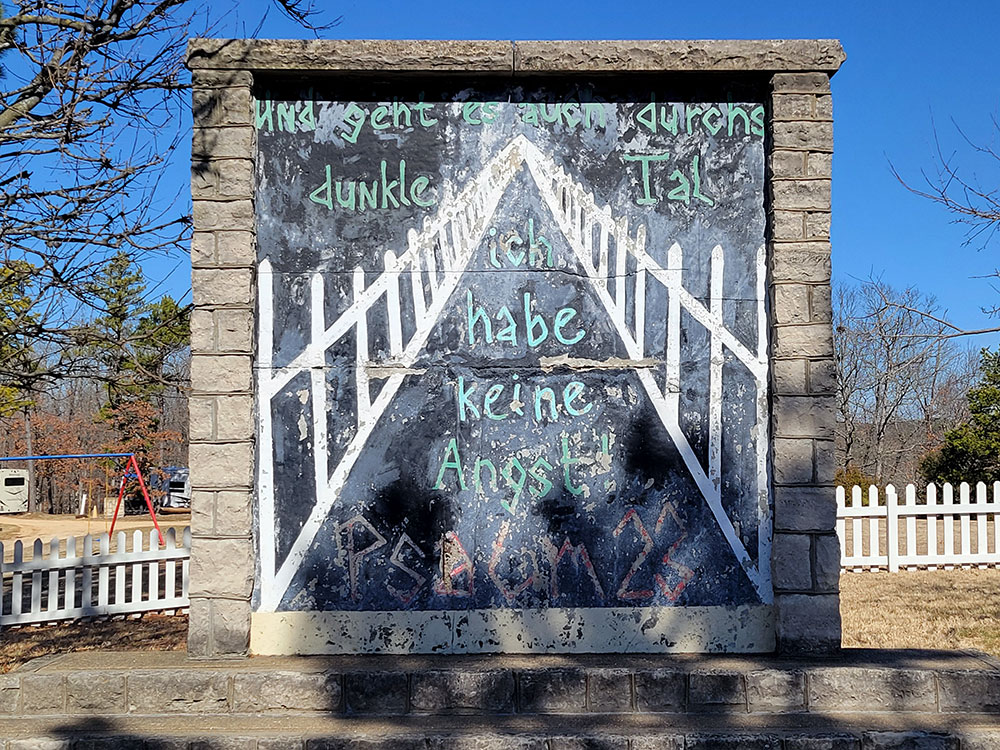 Und geht es auch durchs
dunkle Tal
ich
habe
keine
Angst!
Psalm 23